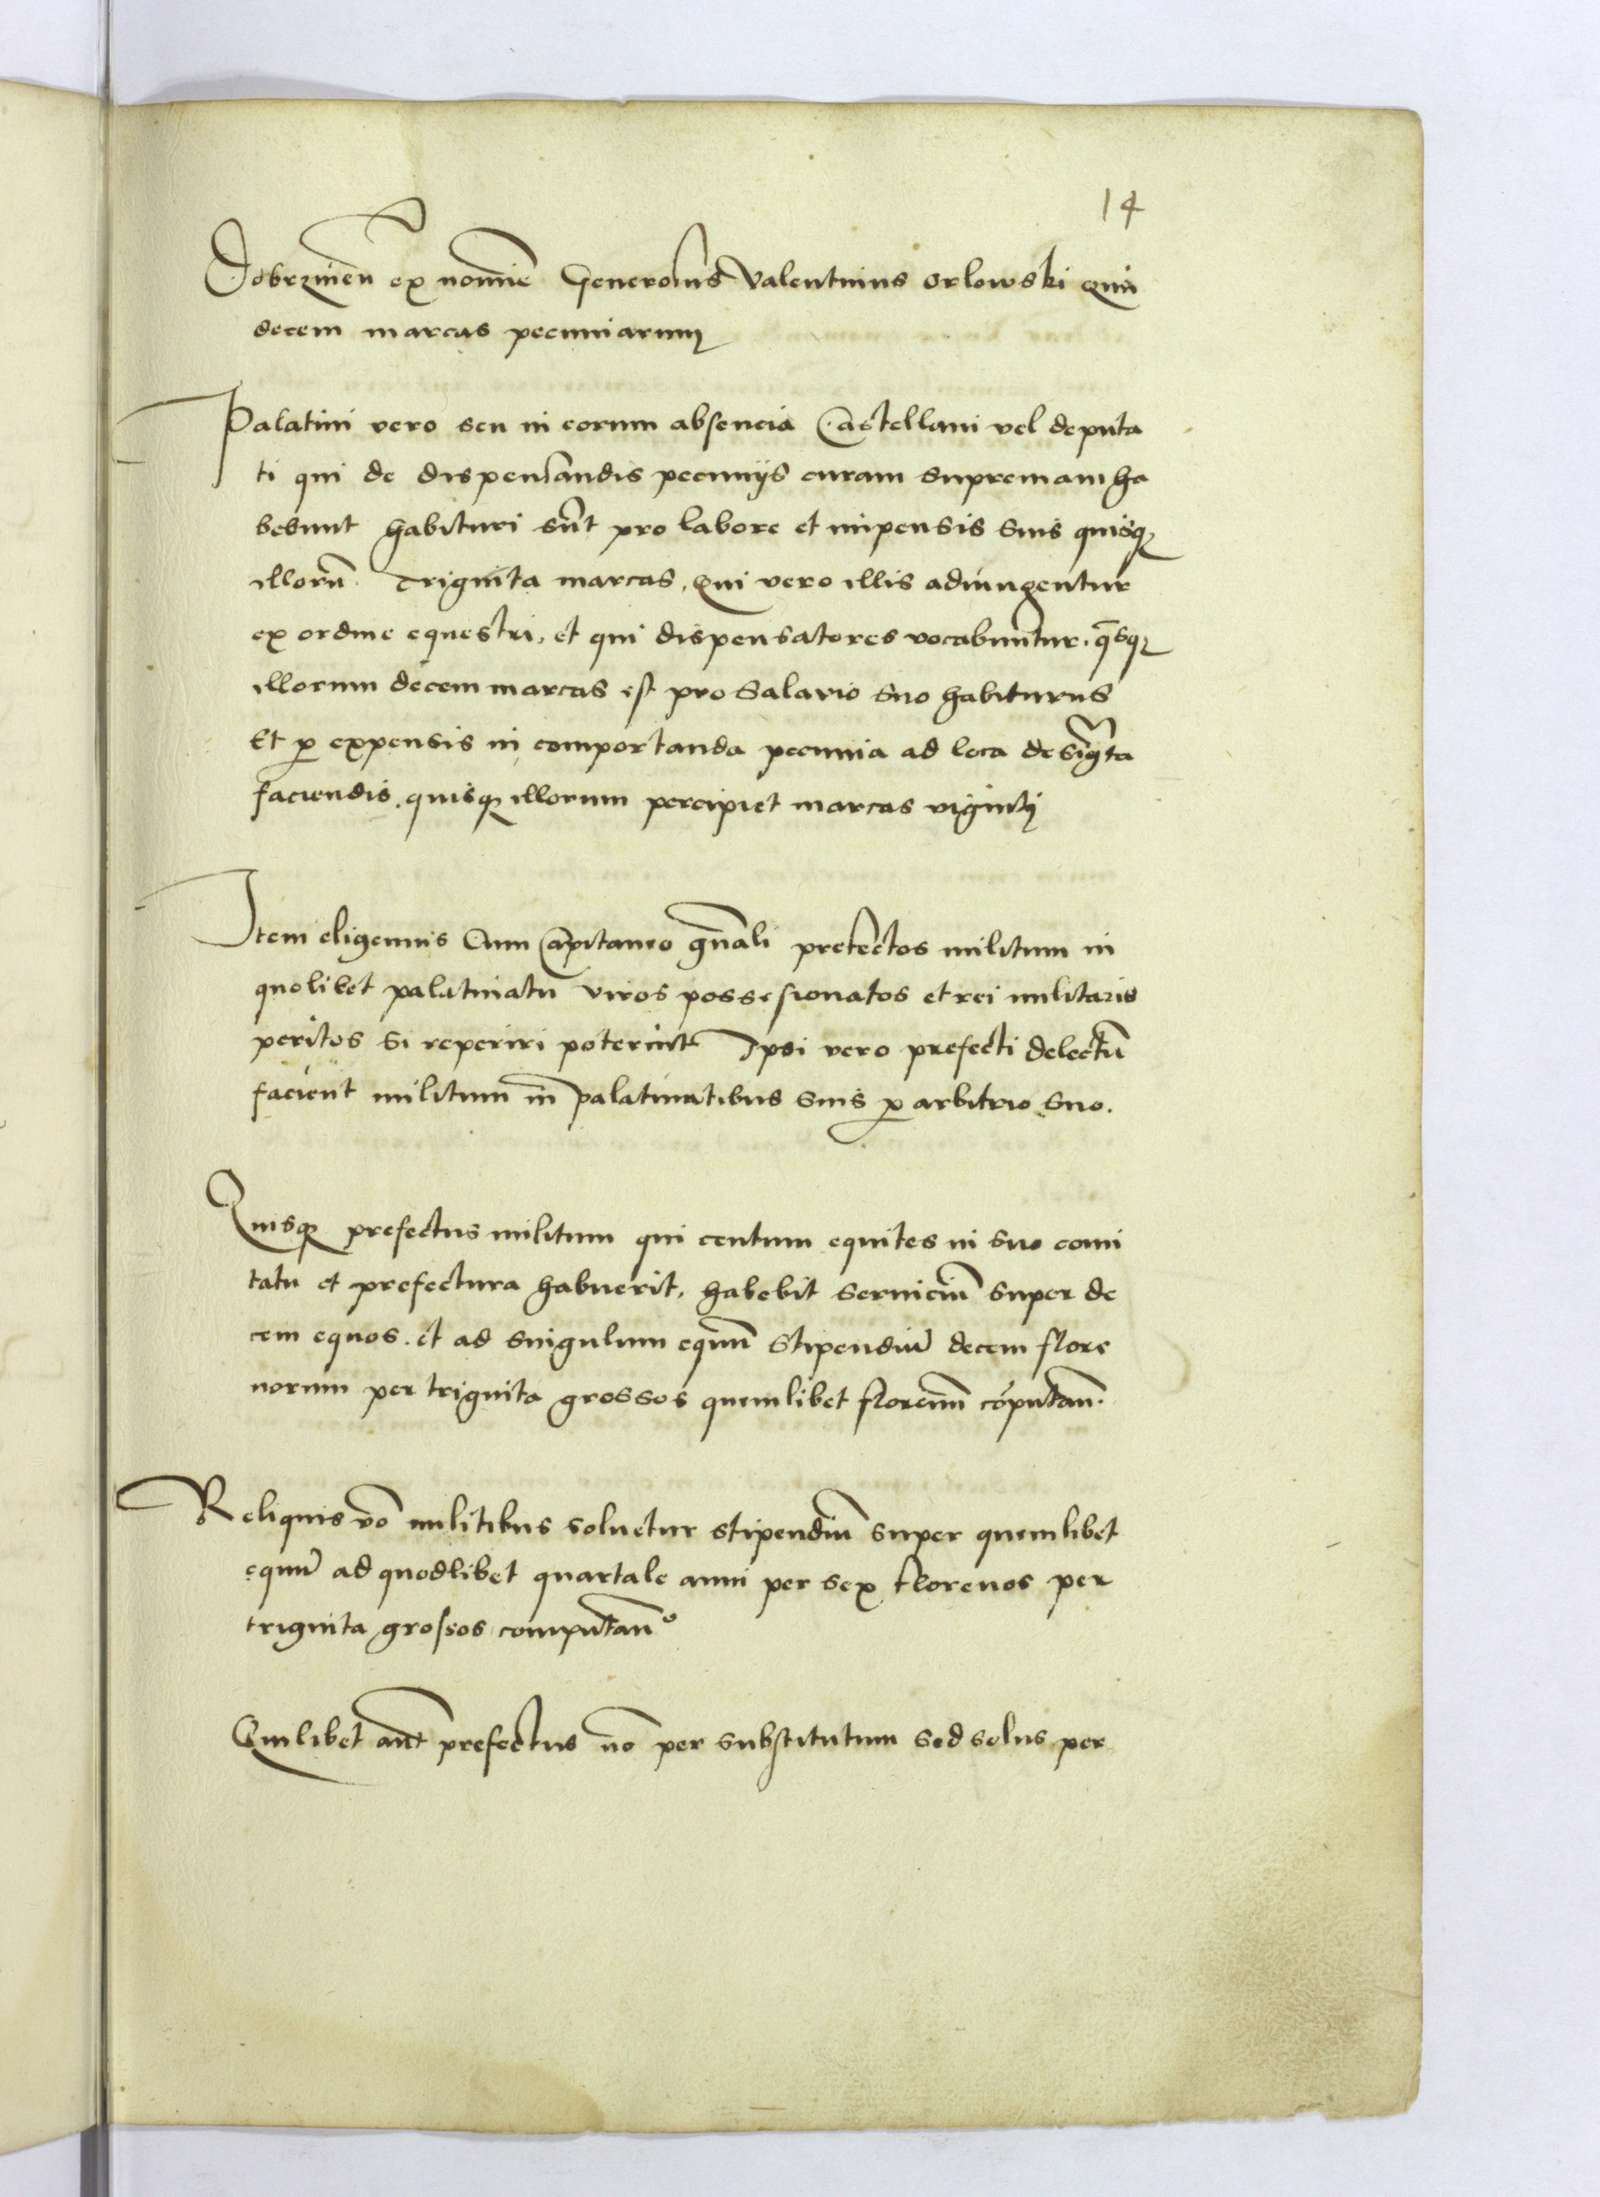 14
Dobrzineñ ex nomine Generosus Valentinus Orlowski Quin
decem marcas pecuniarum
Palatini vero seu in eorum absencia Castellani vel deputa
ti qui de dispensandis pecuniis curam supremam ha
bebunt habituri sũt pro labore et impensis suis quisq
illorũ. Triginta marcas, Qui vero illis adiungentur
ex ordine equestri, et qui dispensatores vocabuntur. qsq
illorum decem marcas est pro salario suo habiturus
Et p expensis in comportanda pecunia ad loca designta
faciendis. quisq illorum percipiet marcas viginti
Item eligemus Cum Capitaneo gnali prefectos militum in
quolibet palatinatu viros possesionatos et rei militaris
peritos si reperiri poterint Ipsi vero prefecti delectũ
facient militum in palatinatibus suis p arbitrio suo.
Quisq prefectus militum qui centum equites in suo comi
tatu et prefectura habuerit, habebit serviciũ super de
cem equos. et ad singulum equũ stipendiũ decem flore
norum per triginta grossos quemlibet florenũ cõputañ.
Reliquis vo militibus soluetur stipendiũ super quemlibet
equũ ad quodlibet quartale anni per sex florenos per
triginta grossos computañº
Quilibet aut prefectus nõ per substitutum sed solus per